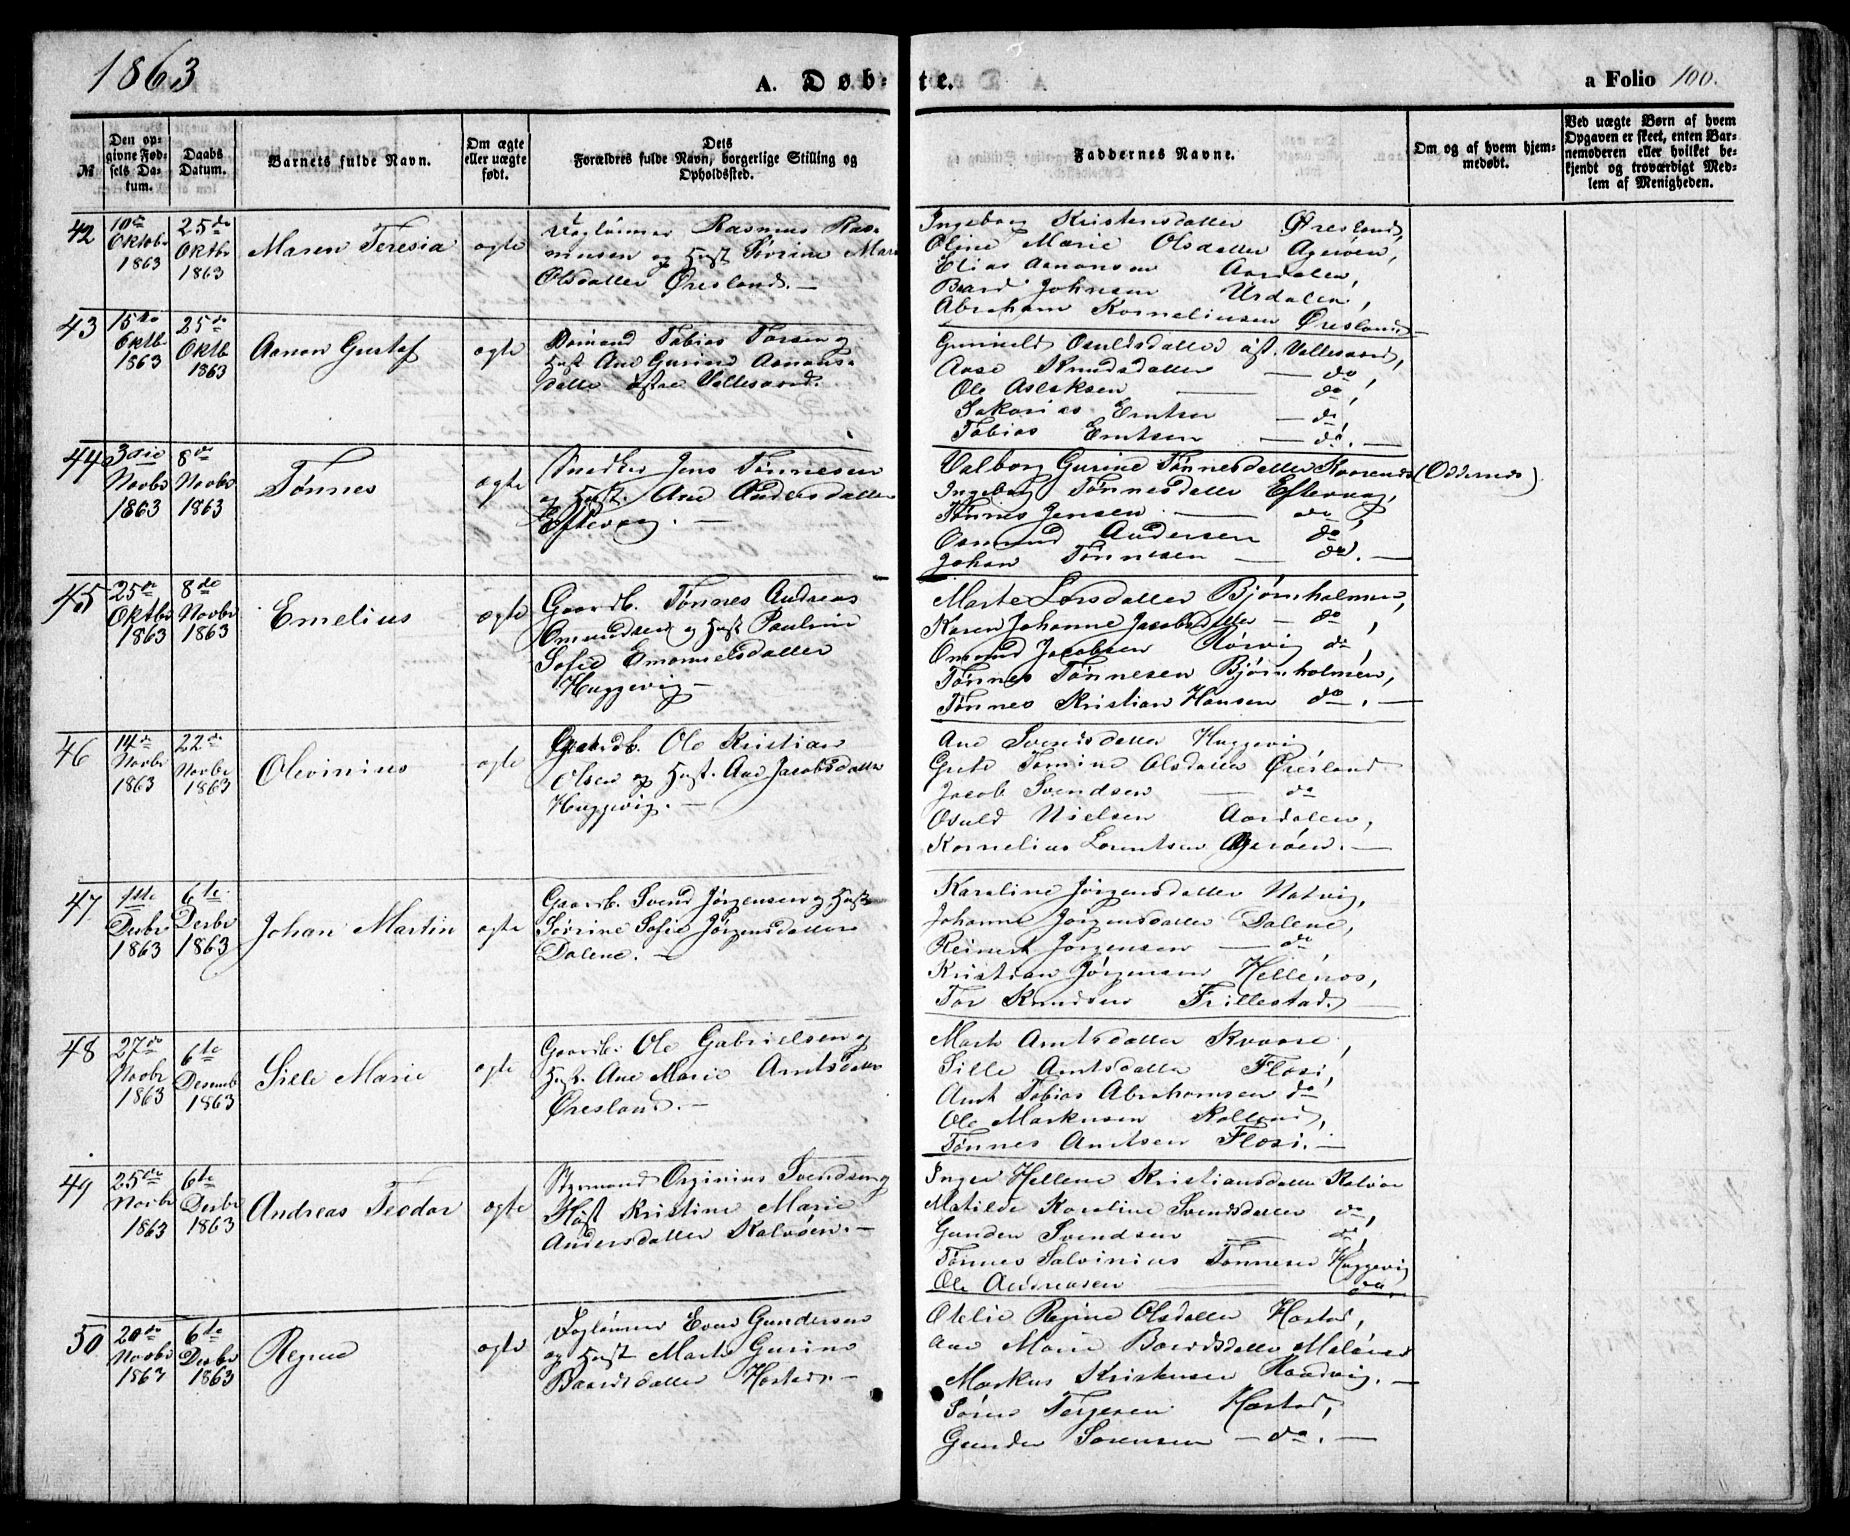 1863
A. Døbte.
a Folio 100.
№
Den opgivne Fødsels Datum.
Daabs Datum.
Barnets fulde Navn.
Om ægte eller uægte født.
Dets Forældres fulde Navn, borgerlige Stilling og Opholdssted.
Faddernes Navne.
Om og af hvem hjemmedøbt.
Ved uægte Børn af hvem Opgaven er skeet, enten Barnemoderen eller hvilket bekjendt og troværdigt Medlem af Menigheden.
42
10de Oktobr 1863
25de Oktbr 1863
Maren Teresia
ægte
Daglønner Rasmus Ras-
musen og Hust Sørine Mari
Olsdatter Øresland. —
Ingeborg Kristensdatter Øresland,
Oline Marie Olsdatter Agerøen,
Elias Aanonsen Aardalen,
Baard Johnsen Urdalen,
Abraham Korneliusen Øresland —
43
15de Oktb. 1863
25de Oktb. 1863
Aanon Gustaf
ægte
Sømand Tobias Torsen og
Hust. Ane Gurine Aanons-
datter østre Vallesværd.
Gunnild Osuldsdatter øst. Vallesværd,
Aase Knudsdatter — do,
Ole Aslaksen — do,
Sakarias Erntsen — do,
Tobias Erntsen — do. —
44
3die Novbr 1863
8de Novbr 1863
Tønnes
ægte
Snedker Jens Tønnesen
og Hust. Ane Andersdatter
Eftevaag. —
Valborg Gurine Tønnesdatter Kaarends (Oddernes).
Ingeborg Tønnesdatter Eftevaag,
Tønnes Jensen — do,
Osmund Andersen do
Johan Tønnesen — do. —
45
25de Oktbr 1863
8de Novbr 1863
Emelius
ægte
Gaardb. Tønnes Andreas
Omundsen og Hust Pauline
Sofie Emanuelsdatter
Huggevig —
Marte Larsdatter Bjørnholmen,
Karen Johanne Jacobsdatter — do,
Omund Jacobsen Rørvig do,
Tønnes Tønnesen Bjørnholmen,
Tønnes Kristian Hansen do. —
46
14de Novbr 1863
22de Novbr 1863
Olevinius
ægte
Gaardb. Ole Kristian
Olsen og Hust. Ane Jacobsdatter
Huggevig. —
Ane Svendsdatter Huggevig
Grete Tomine Olsdatter Øresland
Jacob Svendsen — do
Osuld Nielsen Aardalen,
Kornelius Lorentsen Agerøen. —
47
1ste Decbr 1863
6te Decbr 1863
Johan Martin
ægte
Gaardb. Svend Jørgensen og Hust
Sørine Sofie Jørgensdatter
Dalene. —
Karoline Jørgensdatter Natvig,
Johanne Jørgensdatter Dalene,
Reinert Jørgensen — do,
Kristian Jørgensen Hellenes,
Tor Knudsen Frillestad. —
48
27de Novbr 1863
6te Desemb 1863
Sille Marie
ægte
Gaardb. Ole Gabrielsen og
Hust. Ane Marie Arntsdatter
Øresland. —
Marte Arntsdatter Kvaase,
Sille Arntsdatter Flosi,
Arnt Tobias Abrahamsen do
Ole Markusen Kolland,
Tønnes Arntsen Flosi. —
49
25de Novbr 1863
6te Decbr 1863
Andreas Teodor
ægte
Styrmand Orginius Svendsen og
Hust Kristine Marie
Andersdatter Kalvøen. —
Inger Hellene Kristiansdatter Kalvøe
Matilde Karoline Svendsdatter do,
Gunder Svendsen — do,
Tønnes Salvinius Tønnesen Huggevig
Ole Andreasen — do.
50
20de Novbr 1863
6te Decbr 1863
Regine
ægte
Daglønner Even Gundersen
og Hust Marte Gurine
Baardsdatter Hæstad. —
Otelie Regine Olsdatter Hæstad,
Ane Marie Baardsdatter
Markus Kristensen Haadvig. —
Søren Terjesen Hæstad,
Gunder Sørensen — do. —